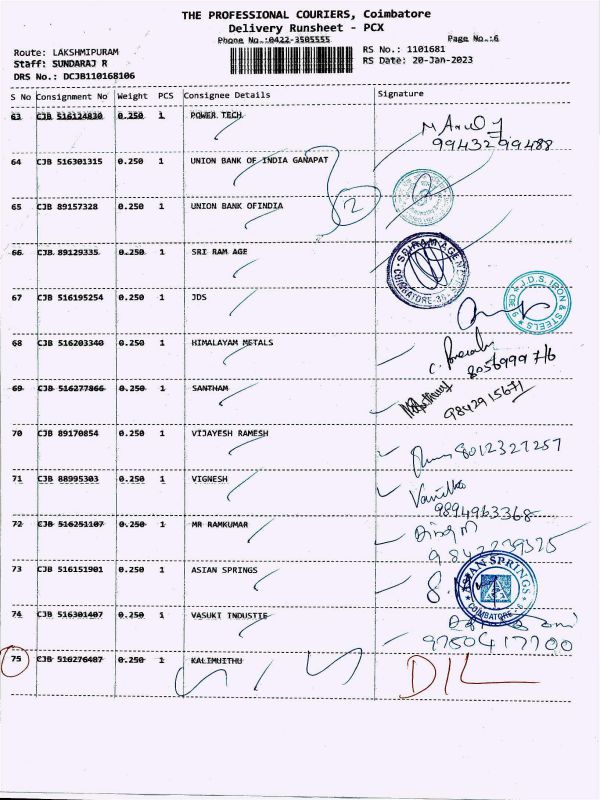 THE PROFESSIONAL COURIERS, Coimbatore
Delivery Runsheet - PCX
Phone No.:0422-3505555 Page No.:6
Route: LAKSHMIPURAM RS No.: 1101681
Staff: SUNDARAJ R RS Date: 20-Jan-2023
DRS No.: DCJB110168106
S No Consignment No Weight PCS Consignee Details Signature
63 CJB 516124830 0.250 1 POWER TECH
99432 99488
64 CJB 516301315 0.250 1 UNION BANK OF INDIA GANAPAT
2
65 CJB 89157328 0.250 1 UNION BANK OFINDIA
66 CJB 89129335 0.250 1 SRI RAM AGE
SRIRAM AGEN COIMBATORE-35
67 CJB 516195254 0.250 1 JDS
J.D.S. IRON & STEELS CBE-6
68 CJB 516203340 0.250 1 HIMALAYAM METALS
8056999716
69 CJB 516277866 0.250 1 SANTHAM
9842915671
70 CJB 89170854 0.250 1 VIJAYESH RAMESH
8012327257
71 CJB 88995303 0.250 1 VIGNESH
9894963368
72 CJB 516251107 0.250 1 MR RAMKUMAR
73 CJB 516151901 0.250 1 ASIAN SPRINGS
ASIAN SPRINGS COIMBATORE-6
74 CJB 516301407 0.250 1 VASUKI INDUSTIE
9750417700
75 CJB 516276407 0.250 1 KALIMUITHU
D/L